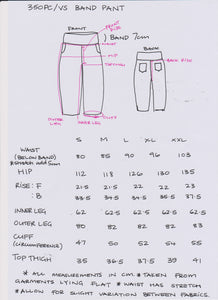 350PC/VS BAND PANT
FRONT
FRONT RISE
BAND 7cm
WAIST
BACK
HIP
BACK RISE
THIGH
CUFF
OUTER LEG
INNER LEG
S M L XL XXL
WAIST 80 85 90 96 103
(BELOW BAND)
HIP 112 118 126 130 135
RISE: F 21.5 21.5 22 22 23
: B 33.5 34.5 35 35.5 37.5
INNER LEG 62 62.5 62.5 62.5 62.5
OUTER LEG 80 82 83 83 83.5
CUFF 47 50 52 54 55
(CIRCUMFERENCE)
TOP THIGH 35 36.5 37.5 39 41
* ALL MEASUREMENTS IN CM * TAKEN FROM
GARMENTS LYING FLAT * WAIST HAS STRETCH
* ALLOW FOR SLIGHT VARIATION BETWEEN FABRICS